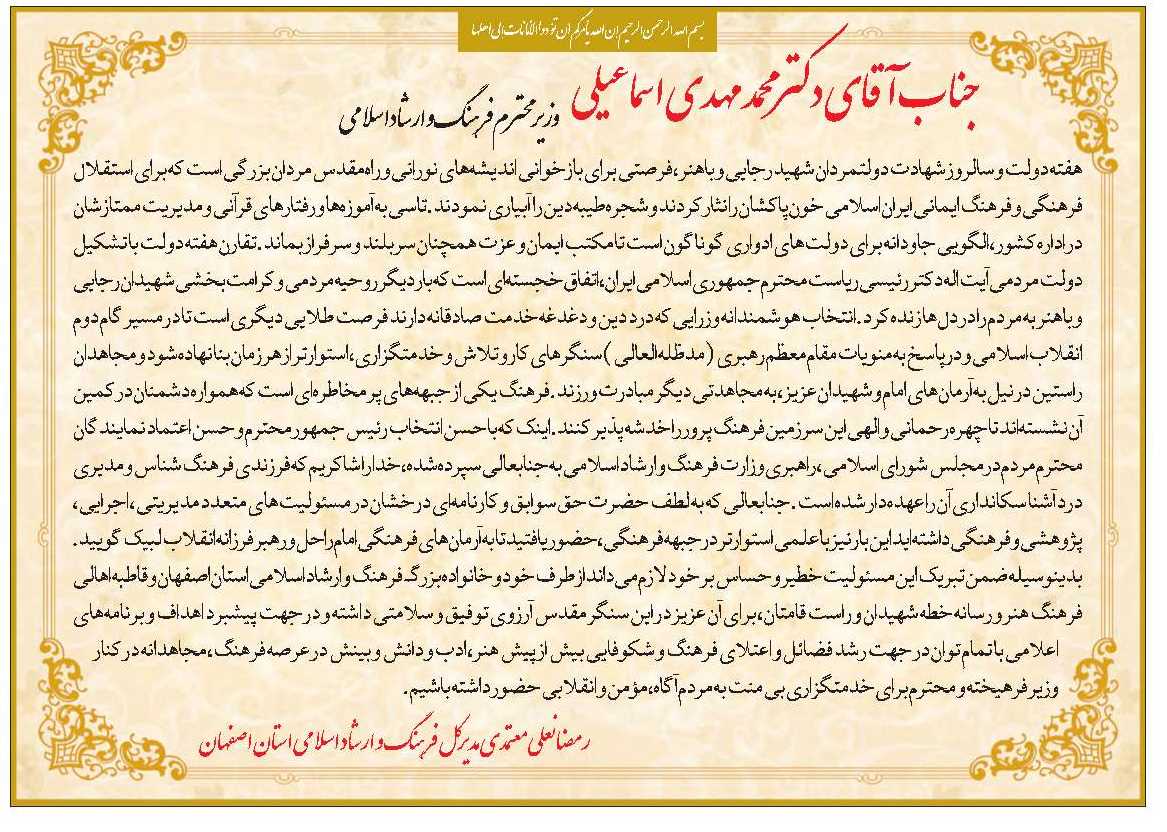 بسم الله الرحمن الرحیم إن الله یأمرکم إن تؤدوا الأمانات الی اهلها
جناب آقای دکتر محمد مهدی اسماعیلی
وزیر محترم فرهنگ و ارشاد اسلامی
هفته دولت و سالروز شهادت دولتمردان شهید رجایی و باهنر، فرصتی برای بازخوانی اندیشه‌های نورانی و راه مقدس مردان بزرگی است که برای استقلال
فرهنگی و فرهنگ ایمانی ایران اسلامی خون پاکشان را نثار کردند و شجره طیبه دین را آبیاری نمودند. تاسی به آموزه‌ها و رفتارهای قرآنی و مدیریت ممتازشان
در اداره کشور، الگویی جاودانه برای دولت‌های ادواری گوناگون است تا مکتب ایمان و عزت همچنان سربلند و سرفراز بماند. تقارن هفته دولت با تشکیل
دولت مردمی آیت اله دکتر رئیسی ریاست محترم جمهوری اسلامی ایران، اتفاق خجسته‌ای است که بار دیگر روحیه مردمی و کرامت بخشی شهیدان رجایی
و باهنر به مردم را در دل ها زنده کرد. انتخاب هوشمندانه وزرایی که درد دین و دغدغه خدمت صادقانه دارند فرصت طلایی دیگری است تا در مسیر گام دوم
انقلاب اسلامی و در پاسخ به منویات مقام معظم رهبری (مدظله العالی) سنگرهای کار و تلاش و خدمتگزاری، استوارتر از هر زمان بنا نهاده شود و مجاهدان
راستین در نیل به آرمان‌های امام و شهیدان عزیز، به مجاهدتی دیگر مبادرت ورزند. فرهنگ یکی از جبهه‌های پر مخاطره‌ای است که همواره دشمنان در کمین
آن نشسته‌اند تا چهره رحمانی و الهی این سرزمین فرهنگ پرور را خدشه پذیر کنند. اینک که با حسن انتخاب رئیس جمهور محترم و حسن اعتماد نمایندگان
محترم مردم در مجلس شورای اسلامی، راهبری وزارت فرهنگ و ارشاد اسلامی به جنابعالی سپرده شده، خدا را شاکریم که فرزندی فرهنگ شناس و مدیری
درد آشنا سکانداری آن را عهده دار شده است. جنابعالی که به لطف حضرت حق سوابق و کارنامه‌ای درخشان در مسئولیت‌های متعدد مدیریتی، اجرایی،
پژوهشی و فرهنگی داشته اید این بار نیز با علمی استوارتر در جبهه فرهنگی، حضور یافتید تا به آرمان‌های فرهنگی امام راحل و رهبر فرزانه انقلاب لبیک گویید.
بدینوسیله ضمن تبریک این مسئولیت خطیر و حساس بر خود لازم می داند از طرف خود و خانواده بزرگ فرهنگ و ارشاد اسلامی استان اصفهان و قاطبه اهالی
فرهنگ هنر و رسانه خطه شهیدان و راست قامتان، برای آن عزیز در این سنگر مقدس آرزوی توفیق و سلامتی داشته و در جهت پیشبرد اهداف و برنامه‌های
اعلامی با تمام توان در جهت رشد فضائل و اعتلای فرهنگ و شکوفایی بیش از پیش هنر، ادب و دانش و بینش در عرصه فرهنگ، مجاهدانه در کنار
وزیر فرهیخته و محترم برای خدمتگزاری بی منت به مردم آگاه، مؤمن و انقلابی حضور داشته باشیم.
رمضانعلی معتمدی مدیرکل فرهنگ و ارشاد اسلامی استان اصفهان